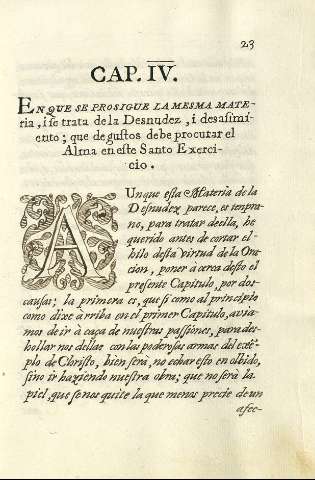 23
CAP. IV.
EN QUE SE PROSIGUE LA MESMA MATE-
ria, i se trata de la Desnudez, i desasimi-
ento; que de gustos debe procurar el
Alma en este Santo Exerci-
cio.
AUnque esta Materia de la
Desnudez parece, es tempra-
no, para tratar de ella, he
querido antes de cortar el
hilo desta virtud de la Ora
cion, poner a cerca desto el
presente Capitulo, por dos-
causas; la primera es, que si como al principio
como dixe arriba en el primer Capitulo, avia-
mos de ir à caça de nuestras passiones, para des-
hollar nos dellas con las poderosas armas del exẽ-
plo de Christo, bien serà, no echar esto en olbido,
sino ir haziendo nuestra obra; que no serà la-
piel, que se nos quite la que menos precie de un
afec-